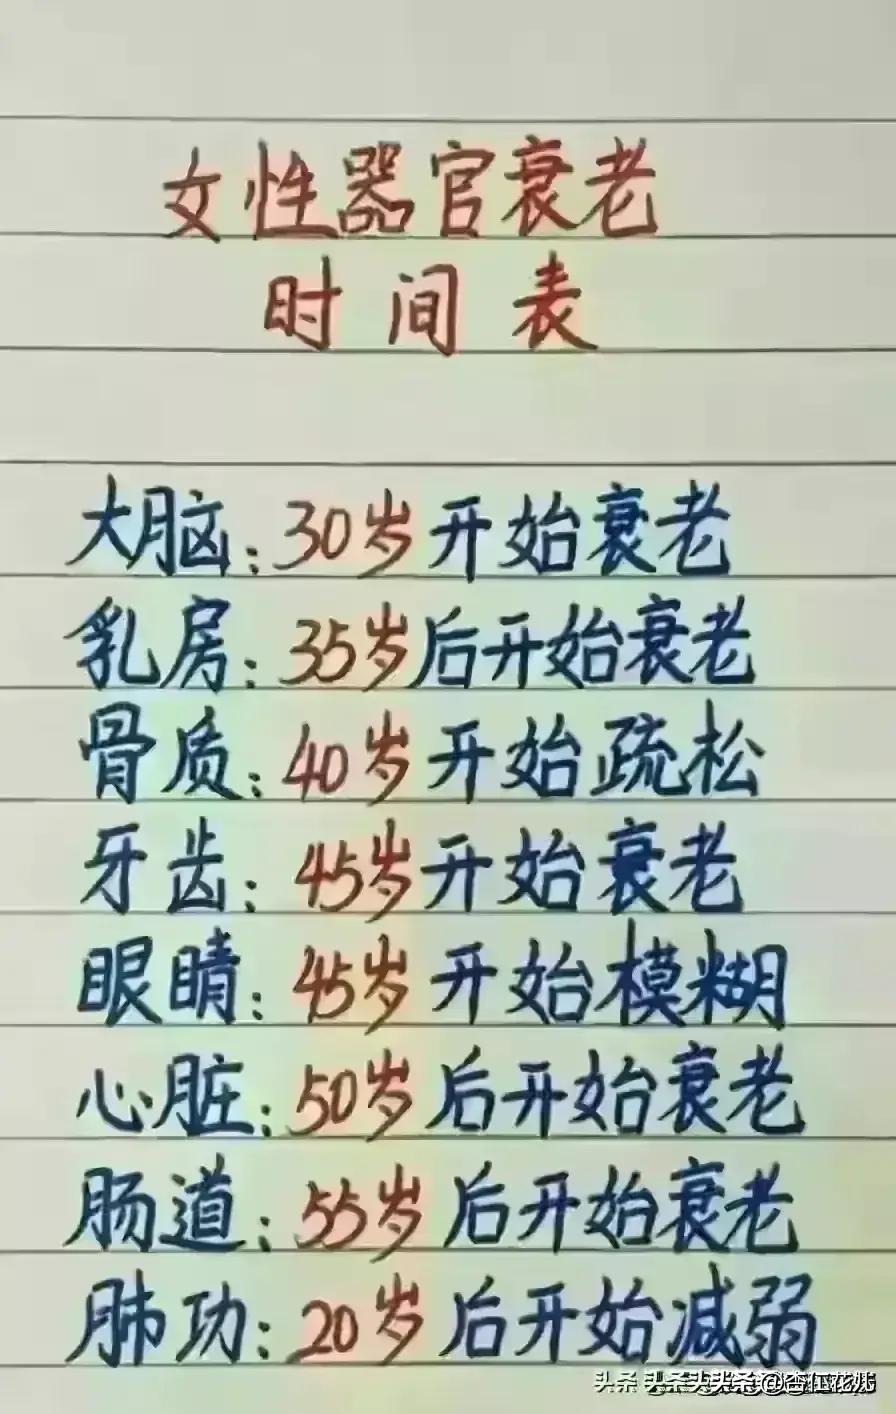 女性器官衰老
时间表
大脑:30岁开始衰老
乳房:35岁后开始衰老
骨质:40岁开始疏松
牙齿:45岁开始衰老
眼睛:45岁开始模糊
心脏:50岁后开始衰老
肠道:55岁后开始衰老
肺功:20岁后开始减弱
头条 @杏仁花妩